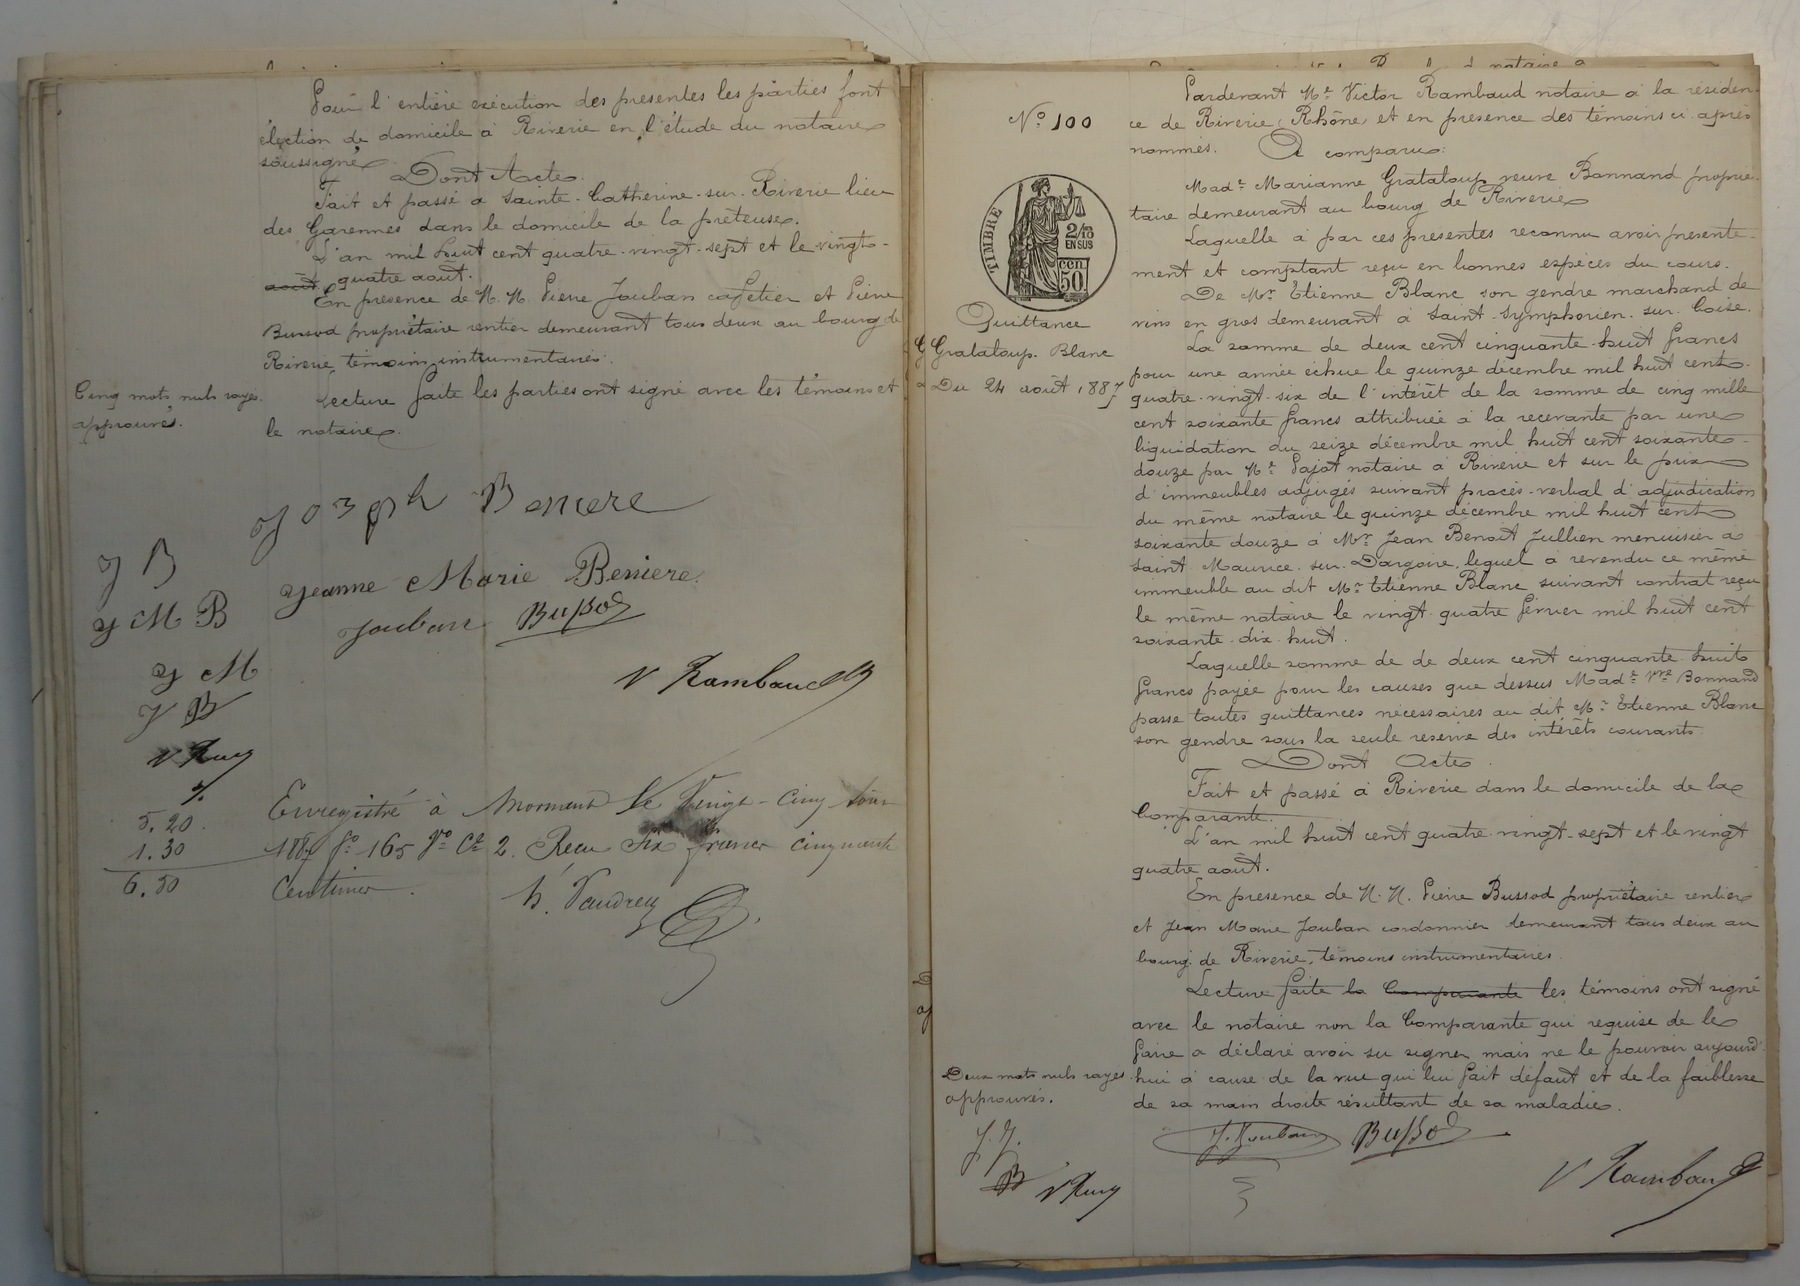 Pour l'entière exécution des présentes les parties font
élection de domicile à Riverie en l'étude du notaire
soussigné.
Dont Acte.
Fait et passé à Sainte-Catherine-sur-Riverie lieu
des Garennes dans le domicile de la prêteuse.
L'an mil huit cent quatre-vingt-sept et le vingt-
août quatre août.
En présence de M. M. Pierre Jouban cafetier et Pierre
Bussod propriétaire rentier demeurant tous deux au bourg de
Riverie, témoins instrumentaires.
Cinq mots nuls rayés
approuvés.
Lecture faite les parties ont signé avec les témoins et
le notaire.
Joseph Beniere
J B
Jeanne Marie Beniere
J M B
Jouban Bussod
J M
V Rambaud
J B
V Ram
5.20
1.30
6.50
Enregistré à Mornant le Vingt-Cinq Août
1887 f° 165 V° Ce 2. Reçu Six francs cinquante
Centimes.
h. Vaudrey
N° 100
TIMBRE
2/10
EN SUS
50 cen.
Quittance
Grataloup. Blanc
Du 24 août 1887
Pardevant Me Victor Rambaud notaire à la résiden-
ce de Riverie (Rhône) et en présence des témoins ci-après
nommés. A comparu:
Made Marianne Grataloup veuve Bonnand proprié-
taire demeurant au bourg de Riverie
Laquelle a par ces présentes reconnu avoir présente-
ment et comptant reçu en bonnes espèces du cours.
De Mr Etienne Blanc son gendre marchand de
vins en gros demeurant à Saint-Symphorien-sur-Coise.
La somme de deux cent cinquante-huit francs
pour une année échue le quinze décembre mil huit cent
quatre-vingt-six de l'intérêt de la somme de cinq mille
cent soixante francs attribuée à la recevante par une
liquidation du seize décembre mil huit cent soixante-
douze par Me Pajot notaire à Riverie et sur le prix
d'immeubles adjugés suivant procès-verbal d'adjudication
du même notaire le quinze décembre mil huit cent
soixante douze à Mr Jean Benoît Jullien menuisier à
Saint Maurice-sur-Dargoire, lequel a revendu ce même
immeuble au dit Mr Etienne Blanc suivant contrat reçu
le même notaire le vingt-quatre février mil huit cent
soixante-dix-huit.
Laquelle somme de de deux cent cinquante-huit
francs payée pour les causes que dessus Made Vve Bonnand
passe toutes quittances nécessaires au dit Mr Etienne Blanc
son gendre sous la seule réserve des intérêts courants.
Dont Acte.
Fait et passé à Riverie dans le domicile de la
Comparante.
L'an mil huit cent quatre-vingt-sept et le vingt
quatre août.
En présence de M. M. Pierre Bussod propriétaire rentier
et Jean Marie Jouban cordonnier demeurant tous deux au
bourg de Riverie, témoins instrumentaires.
Lecture faite la Comparante les témoins ont signé
avec le notaire non la Comparante qui requise de le
faire a déclaré avoir su signer mais ne le pouvoir aujourd'
hui à cause de la vue qui lui fait défaut et de la faiblesse
de sa main droite résultant de sa maladie.
Deux mots nuls rayés
approuvés.
J. Jouban Bussod
V Rambaud
J. J.
B V Ram